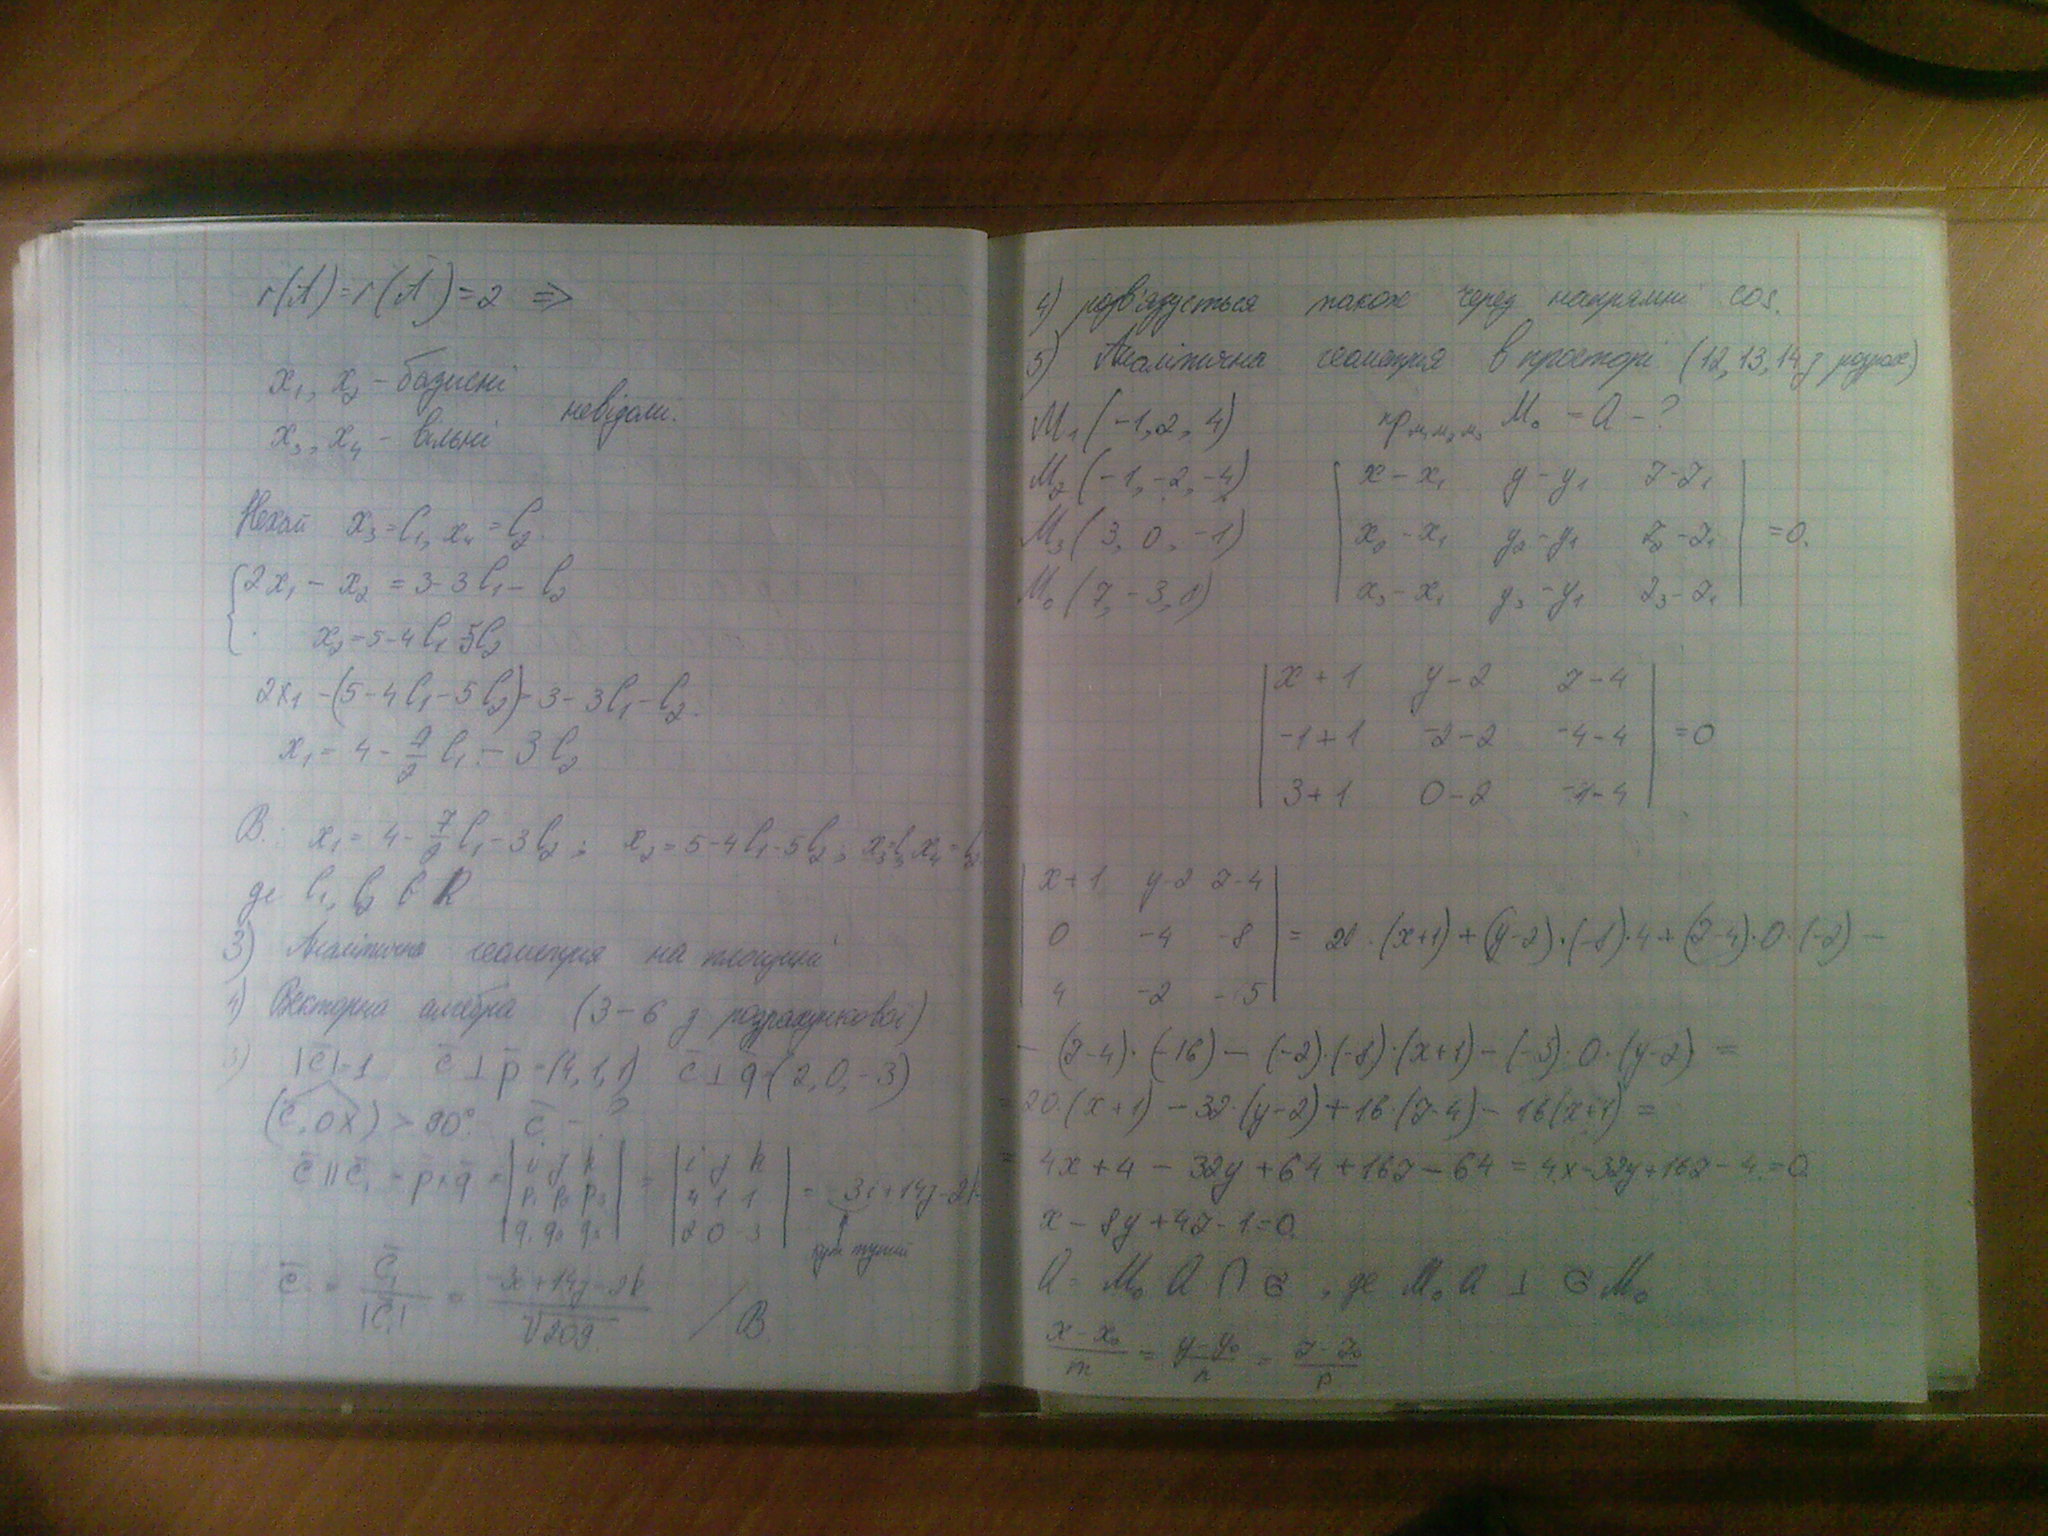 r(A) = r(Ā) = 2 ⇒
x₁, x₂ - базисні
невідомі.
x₃, x₄ - вільні
Нехай x₃ = l₁, x₄ = l₂.
{ 2x₁ - x₂ = 3 - 3l₁ - l₂
x₂ = 5 - 4l₁ - 5l₂
2x₁ - (5 - 4l₁ - 5l₂) = 3 - 3l₁ - l₂.
x₁ = 4 - 7/2 l₁ - 3l₂
В.: x₁ = 4 - 7/2 l₁ - 3l₂; x₂ = 5 - 4l₁ - 5l₂; x₃ = l₁, x₄ = l₂.
де l₁, l₂ є R
3) Аналітична геометрія на площині
4) Векторна алгебра (3-6 з розрахункової)
3) |c̄| = 1 c̄ ⊥ p̄ = (4, 1, 1) c̄ ⊥ q̄ (2, 0, -3)
(c̄, OX) > 90°. c̄ - ?
c̄ || c̄₁ = p̄ × q̄ = | i j k | = | i j k | = -3i + 14j - 2k
| p₁ p₂ p₃ | | 4 1 1 |
| q₁ q₂ q₃ | | 2 0 -3 |
кут тупий
c̄ = c̄₁ / |c̄₁| = -3i + 14j - 2k / √209 / В.
4) розв'язується також через напрямні cos.
5) Аналітична геометрія в просторі (12, 13, 14 з розрах.)
M₁ (-1, 2, 4) пр M₁M₂M₃ M₀ = Q - ?
M₂ (-1, -2, -4) | x - x₁ y - y₁ z - z₁ |
M₃ (3, 0, -1) | x₂ - x₁ y₂ - y₁ z₂ - z₁ | = 0.
M₀ (7, -3, 1) | x₃ - x₁ y₃ - y₁ z₃ - z₁ |
| x + 1 y - 2 z - 4 |
| -1 + 1 -2 - 2 -4 - 4 | = 0
| 3 + 1 0 - 2 -1 - 4 |
| x + 1 y - 2 z - 4 |
| 0 -4 -8 | = 20 · (x+1) + (y-2) · (-8) · 4 + (z-4) · 0 · (-2) -
| 4 -2 -5 |
- (z-4) · (-16) - (-2) · (-8) · (x+1) - (-5) · 0 · (y-2) =
= 20 · (x+1) - 32 · (y-2) + 16 · (z-4) - 16(x+1) =
= 4x + 4 - 32y + 64 + 16z - 64 = 4x - 32y + 16z - 4 = 0
x - 8y + 4z - 1 = 0.
Q = M₀ Q ∩ , де M₀ Q ⊥ M₀
x - x₀ / m = y - y₀ / n = z - z₀ / p